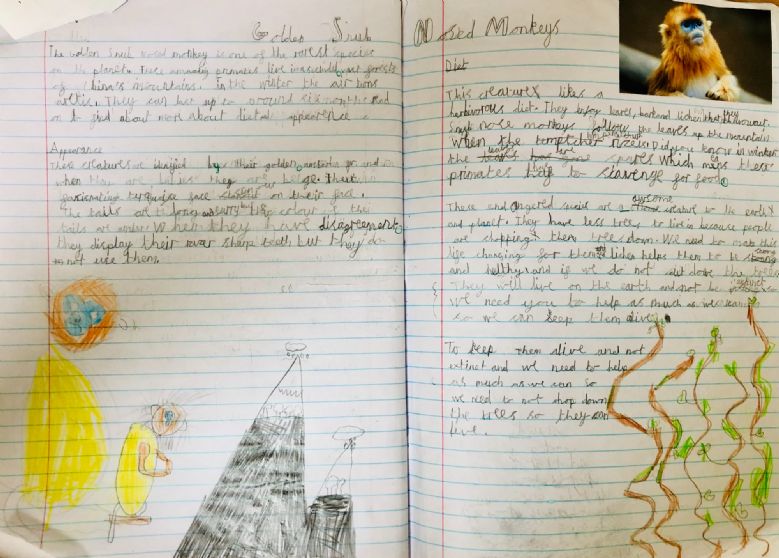 Golden Snub Nosed Monkeys
The Golden Snub Nosed monkey is one of the rarest species
on the planet. These amazing primates live in secluded forests
of China's mountains. in the winter the air turns
arctic. They can last up to around six months. Read
on to find about more about diet and appearance
Appearance
These creatures are by their golden
when they are babies they are beige. Their
turquise face on their face.
The tails are long and colour. the
tails are When they have disagreement
they display their ever sharp teeth but they do
not use them.
Diet
This creature likes a
herbivorous diet. They enjoy leaves, bark and lichen that
Snub nose monkeys follow the leaves up the mountain
when the tempticher rizes. Did you know in winter
the leaves spares which maks these
primates to scavenge for food.
These endangered are a awesome creature to the earth
and planet. They have less trees to live in because people
are chopping them trees down. We need to make this
life changing for them. lichen helps them to be strong
and helthy and if we do not cut down the trees
They will live on the earth and not be extinct
We need you to help as much as we can
so we can keep them alive.
To keep them alive and not
extinct and we need to help
as much as we can so
we need to not chop down
the trees so they can
live.